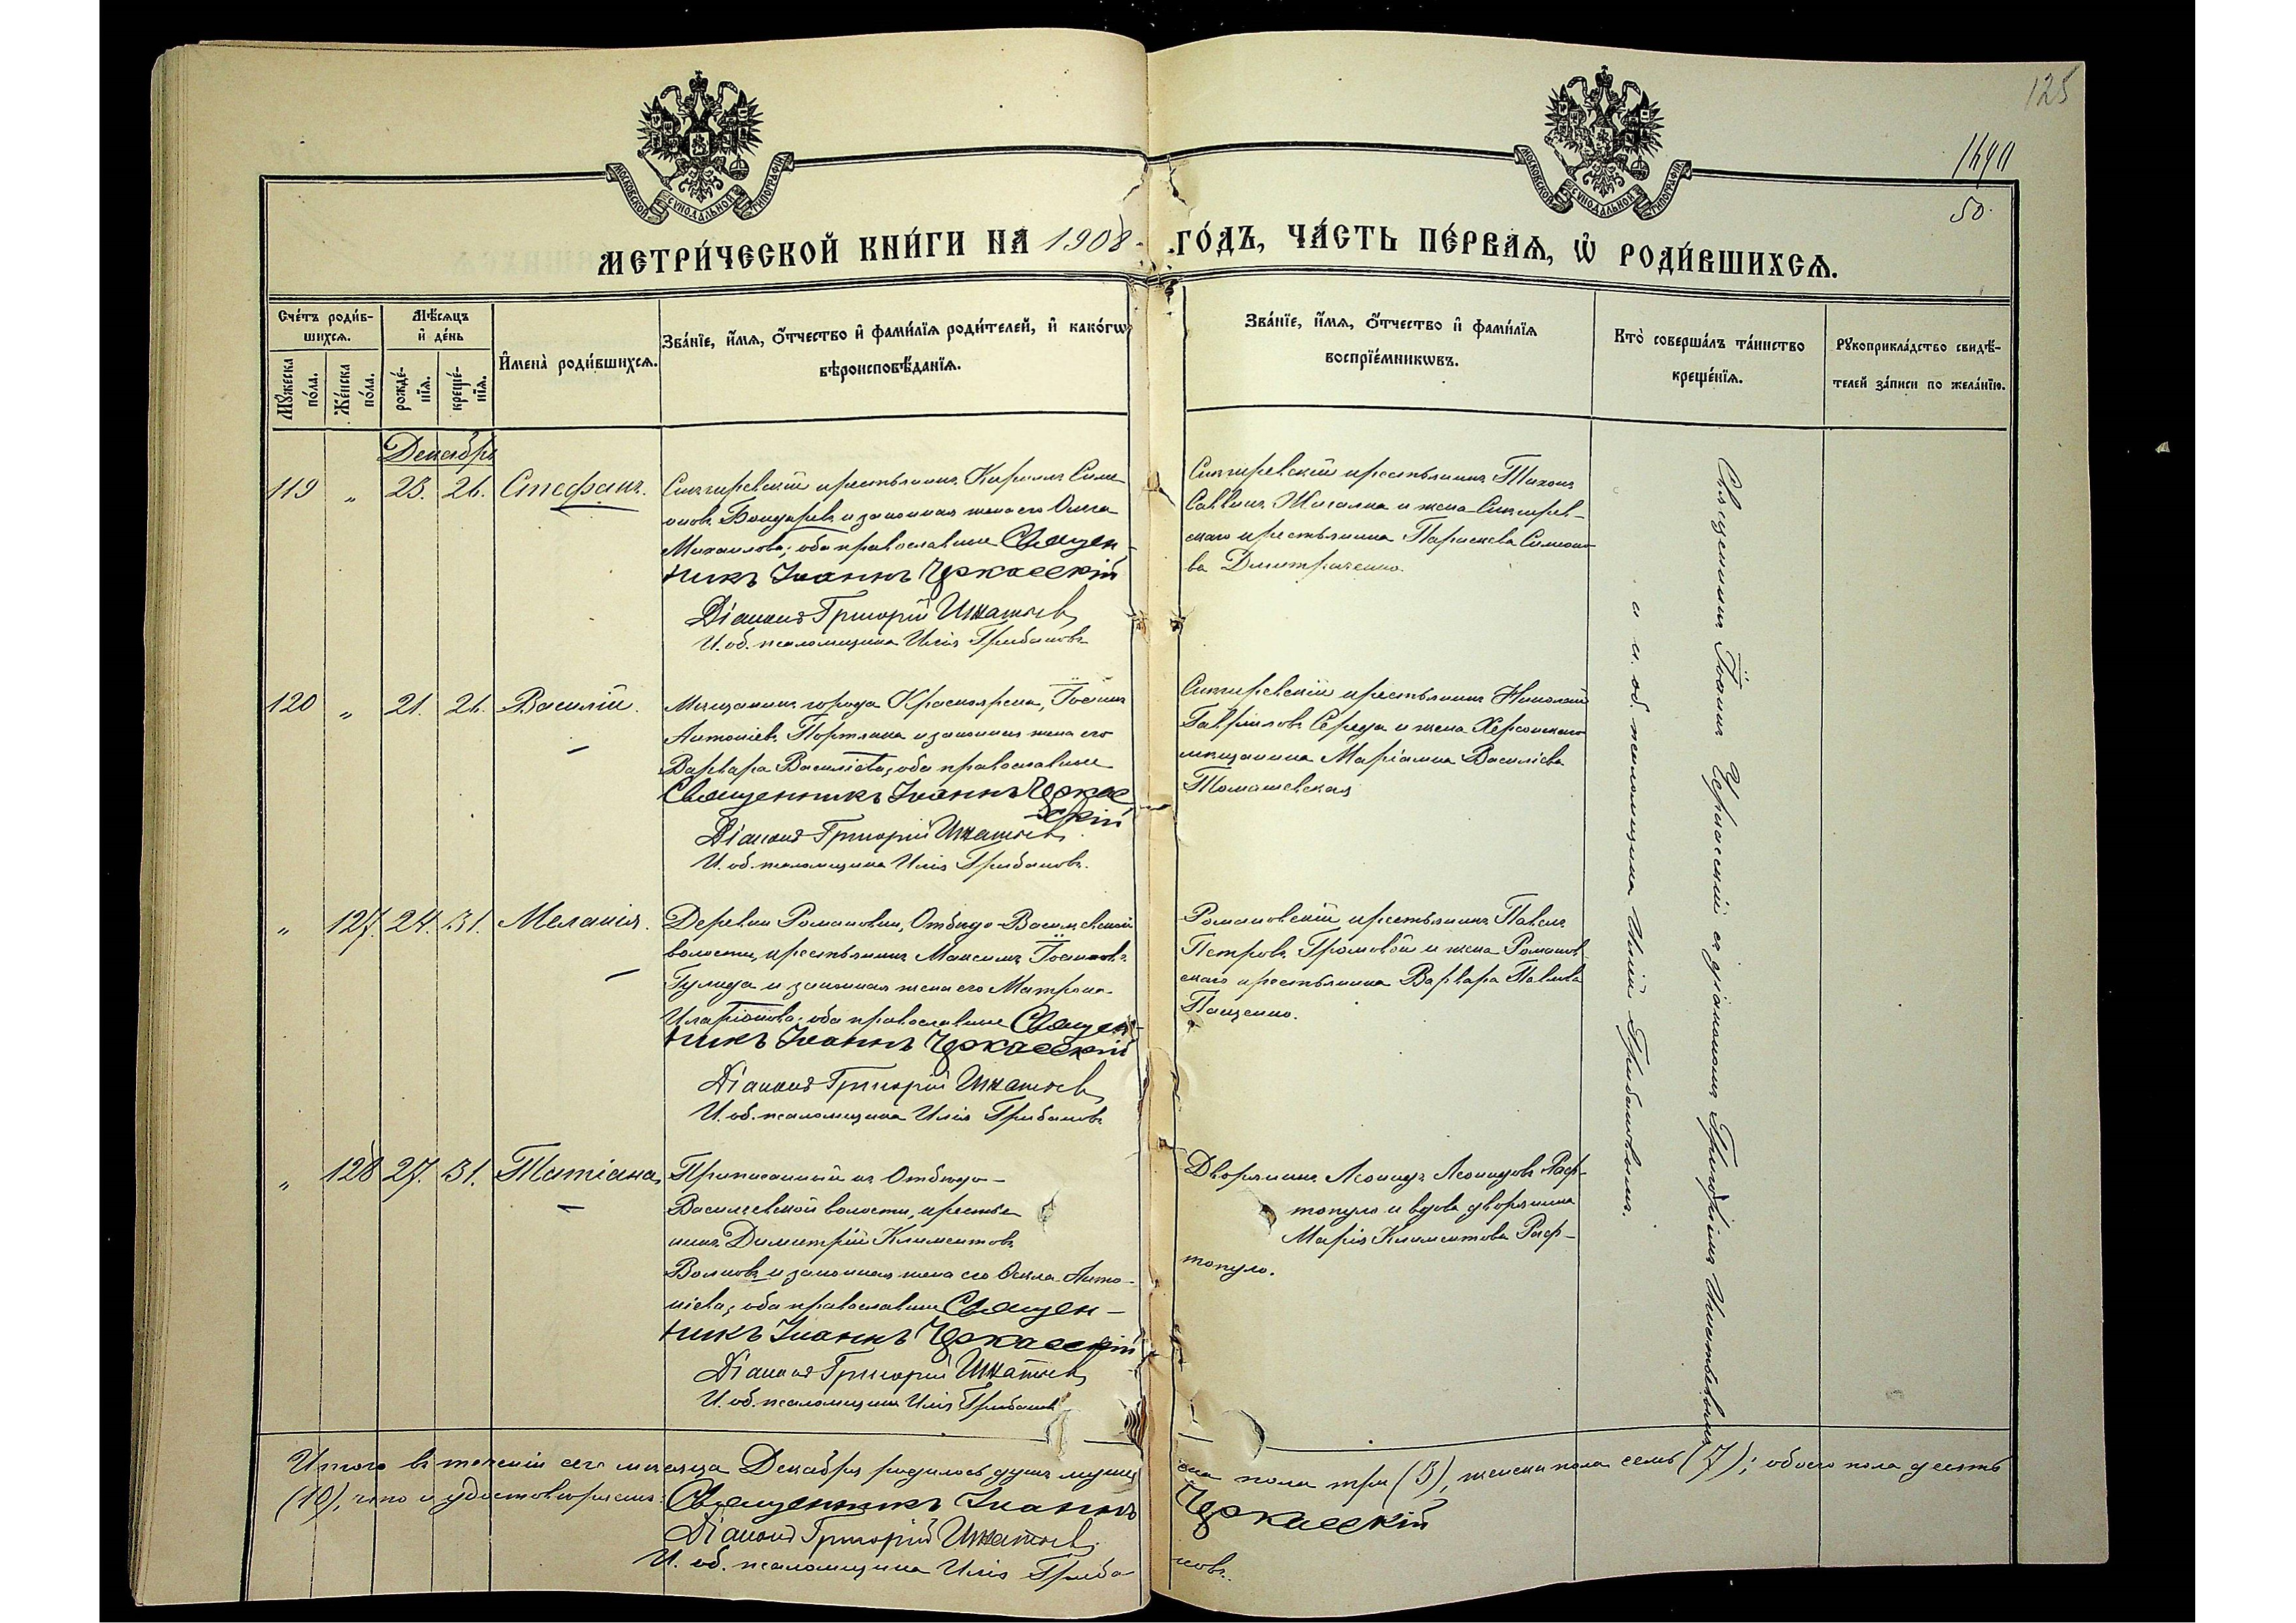 125
1490
50.
МОСКОВСКОЙ СѴНОДАЛЬНОЙ ТИПОГРАФІИ
МОСКОВСКОЙ СѴНОДАЛЬНОЙ ТИПОГРАФІИ
МЕТРИ́ЧЕСКОЙ КНИ́ГИ НА 1908 ГО́ДЪ, ЧА́СТЬ ПЕ́РВАѦ, Ѡ҆ РОДИ́ВШИХСѦ.
Сче́тъ роди́в-
шихсѧ.
Мꙋ́жеска по́ла.
Же́нска по́ла.
Мѣ́сѧцъ и҆ де́нь
рожде́-
нїѧ.
креще́-
нїѧ.
И҆мена̀ роди́вшихсѧ.
Зва́нїе, и҆́мѧ, ѻ҆́тчество и҆ фами́лїѧ роди́телей, и҆ како́гѡ
вѣроисповѣ́данїѧ.
Зва́нїе, и҆́мѧ, ѻ҆́тчество и҆ фами́лїѧ
воспрїе́мникѡвъ.
Кто̀ соверша́лъ та́инство
креще́нїѧ.
Рꙋкоприкла́дство свидѣ́-
телей за́писи по жела́нїю.
Декабрь
119 „ 25. 26. Стефанъ.
Снигиревскій крестьянинъ Кириллъ Симе
оновъ Бондарев и законная жена его Ольга
Михаилова; оба православные Священ-
никъ Іоаннъ Черкасскій
Діаконъ Григорій Игнатьев
И. об. псаломщика Илія Грибановъ
Снигиревскій крестьянинъ Тихонъ
Саввинъ Жигалка и жена Снигирев-
скаго крестьянина Параскева Симеоно
ва Димитриченко.
120 „ 21. 26. Василій.
Мѣщанинъ города Красноярска, Іосифъ
Антоніевъ Портянка и законная жена его
Варвара Василіева; оба православные
Священникъ Іоаннъ Черкас
скій
Діаконъ Григорій Игнатьев
И. об. псаломщика Илія Грибановъ.
Снигиревскій крестьянинъ Николай
Гавріиловъ Середа и жена Херсонскаго
мѣщанина Маріанна Василіева
Томашевская
„ 127. 24. 31. Меланія.
Деревни Романовки, Отбѣдо-Василевской
волости, крестьянинъ Максимъ Іосифовъ
Гулида и законная жена его Матрона
Иларіонова; оба православные Священ-
никъ Іоаннъ Черкасскій
Діаконъ Григорій Игнатьев
И. об. псаломщика Илія Грибановъ
Романовскій крестьянинъ Павелъ
Петровъ Громовой и жена Романов
скаго крестьянина Варвара Павлова
Пащенко.
„ 128 27. 31. Татіана,
Приписанный къ Отбѣдо-
Василіевской волости, крестья
нинъ Димитрій Климентовъ
Волковъ и законная жена его Фекла Анто-
ніева; оба православные Священ-
никъ Іоаннъ Черкасскій
Діаконъ Григорій Игнатьев
И. об. псаломщика Илія Грибановъ
Дворянинъ Леонидъ Леонидовъ Раф-
топуло и вдова дворянина
Марія Климентова Раф-
топуло.
Священникъ Іоаннъ Черкасскій съ діакономъ Григоріемъ Игнатьевымъ
и и. об. псаломщика Иліей Грибановымъ.
Итого въ теченіи сего мѣсяца Декабря родилось душъ мужес
ка пола три (3), женска пола семь (7); обоего пола десять
(10), что и удостовѣряемъ: Священникъ Іоаннъ Черкасскій
Діаконъ Григорій Игнатьев
И. об. псаломщика Илія Грибановъ.